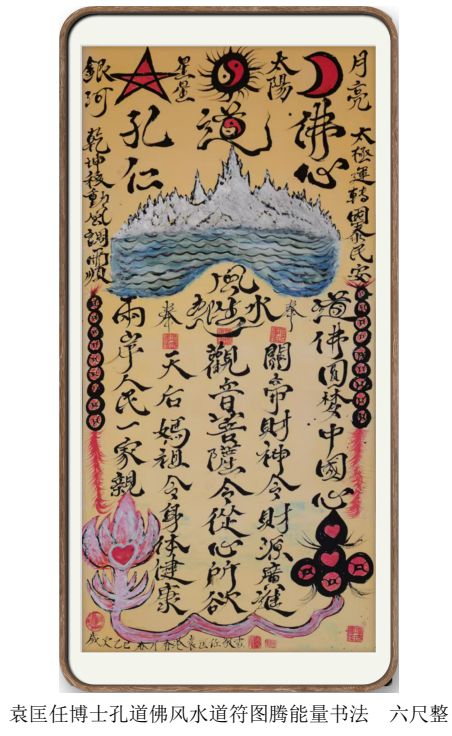 月亮
太陽
星星
銀河
佛心
道
孔仁
太極運轉國泰民安
乾坤移動風調雨順
風水
奉
奉
道佛圓梦中國心
關帝財神令財源廣進
觀音菩薩令從心所欲
天后媽祖令身体健康
兩岸人民一家親
袁匡任博士孔道佛风水道符图腾能量书法 六尺整